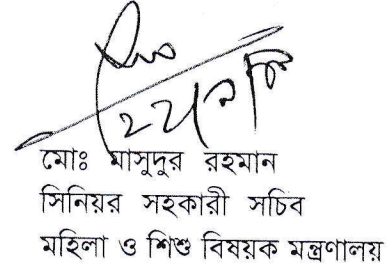 মোঃ মাসুদুর রহমান
সিনিয়র সহকারী সচিব
মহিলা ও শিশু বিষয়ক মন্ত্রণালয়